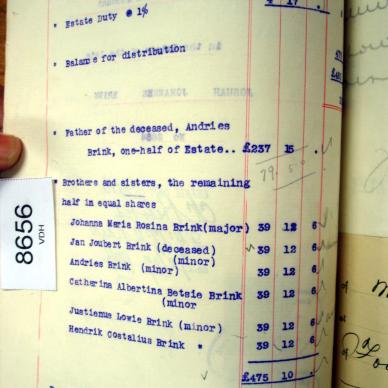 " Estate Duty @ 1% 4 17
" Balance for distribution
" Father of the deceased, Andries
Brink, one-half of Estate.. £237 15 .
79. 5. 0
" Brothers and sisters, the remaining
half in equal shares
Johanna Maria Rosina Brink(major) 39 12 6
Jan Joubert Brink (deceased) 39 12 6
(minor)
Andries Brink (minor) 39 12 6
Catherina Albertina Betsie Brink 39 12 6
(minor
Justinus Lowie Brink (minor) 39 12 6
Hendrik Costalius Brink " 39 12 6
£475 10 .
8656
VDH